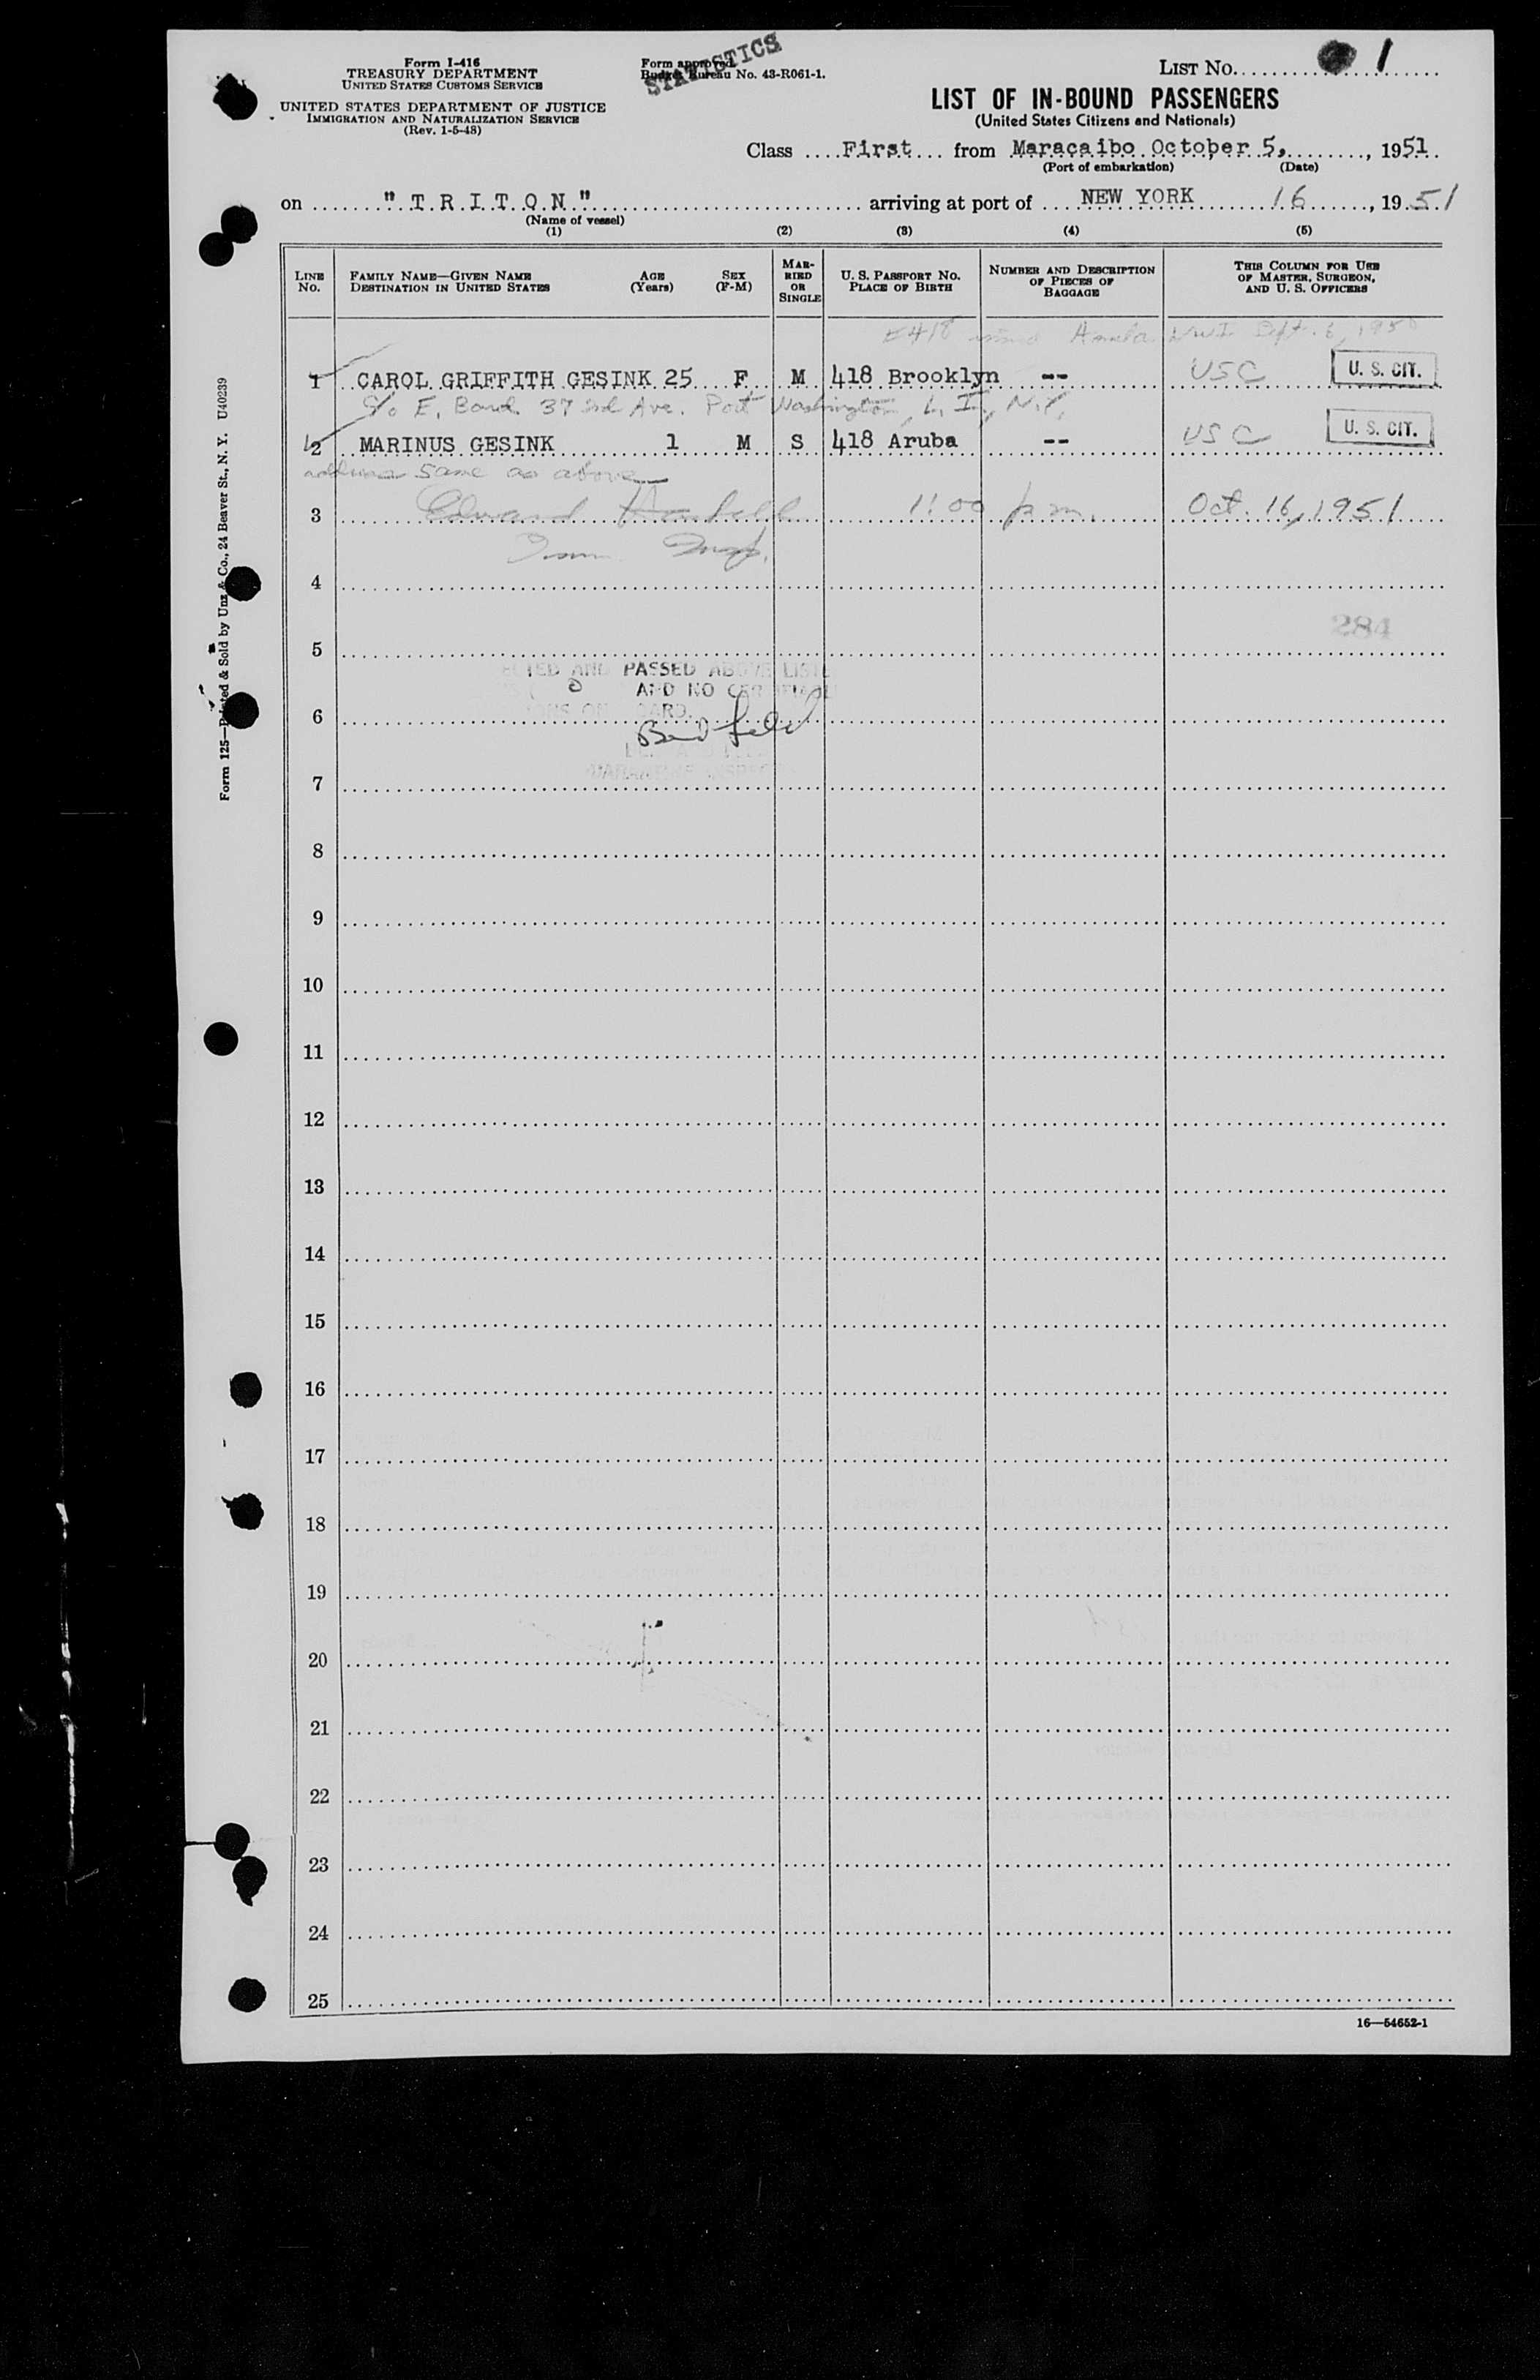 Form I-416
TREASURY DEPARTMENT
UNITED STATES CUSTOMS SERVICE
UNITED STATES DEPARTMENT OF JUSTICE
IMMIGRATION AND NATURALIZATION SERVICE
(Rev. 1-5-48)
Form approved.
Budget Bureau No. 43-R061-1.
STATISTICS
LIST No. 1
LIST OF IN-BOUND PASSENGERS
(United States Citizens and Nationals)
Class First from Maracaibo October 5, , 1951
(Port of embarkation) (Date)
on "T R I T O N" arriving at port of NEW YORK 16, 1951
(Name of vessel)
(1) (2) (3) (4) (5)
LINE No. FAMILY NAME—GIVEN NAME DESTINATION IN UNITED STATES AGE (Years) SEX (F-M) MARRIED OR SINGLE U. S. PASSPORT No. PLACE OF BIRTH NUMBER AND DESCRIPTION OF PIECES OF BAGGAGE THIS COLUMN FOR USE OF MASTER, SURGEON, AND U. S. OFFICERS
418 issued Sept. 6, 195
1 CAROL GRIFFITH GESINK 25 F M 418 Brooklyn -- USC U. S. CIT.
c/o E. 37 Ave. Port Washington, L. I., N.Y.
2 MARINUS GESINK 1 M S 418 Aruba -- USC U. S. CIT.
address same as above
3 Edward 1:00 p.m. Oct. 16, 1951
Imm Insp.
4
284
5
PASSED ABOVE
AND NO
6
7
8
9
10
11
12
13
14
15
16
17
18
19
20
21
22
23
24
25
16—54652-1
Form 125—Printed & Sold by Unz & Co., 24 Beaver St., N. Y. U40239